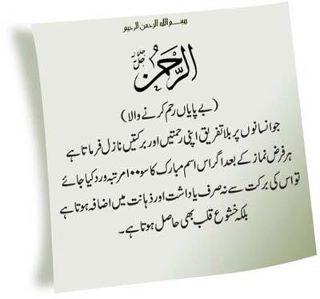 بسم اللہ الرحمن الرحیم
الرَّحْمٰنُ جل جلالہ
(بے پایاں رحم کرنے والا)
جو انسانوں پر بلا تفریق اپنی رحمتیں اور برکتیں نازل فرماتا ہے
ہر فرض نماز کے بعد اگر اس اسم مبارک کا سو ۱۰۰ مرتبہ ورد کیا جائے
تو اس کی برکت سے نہ صرف یادداشت اور ذہانت میں اضافہ ہوتا ہے
بلکہ خشوع قلب بھی حاصل ہوتا ہے۔